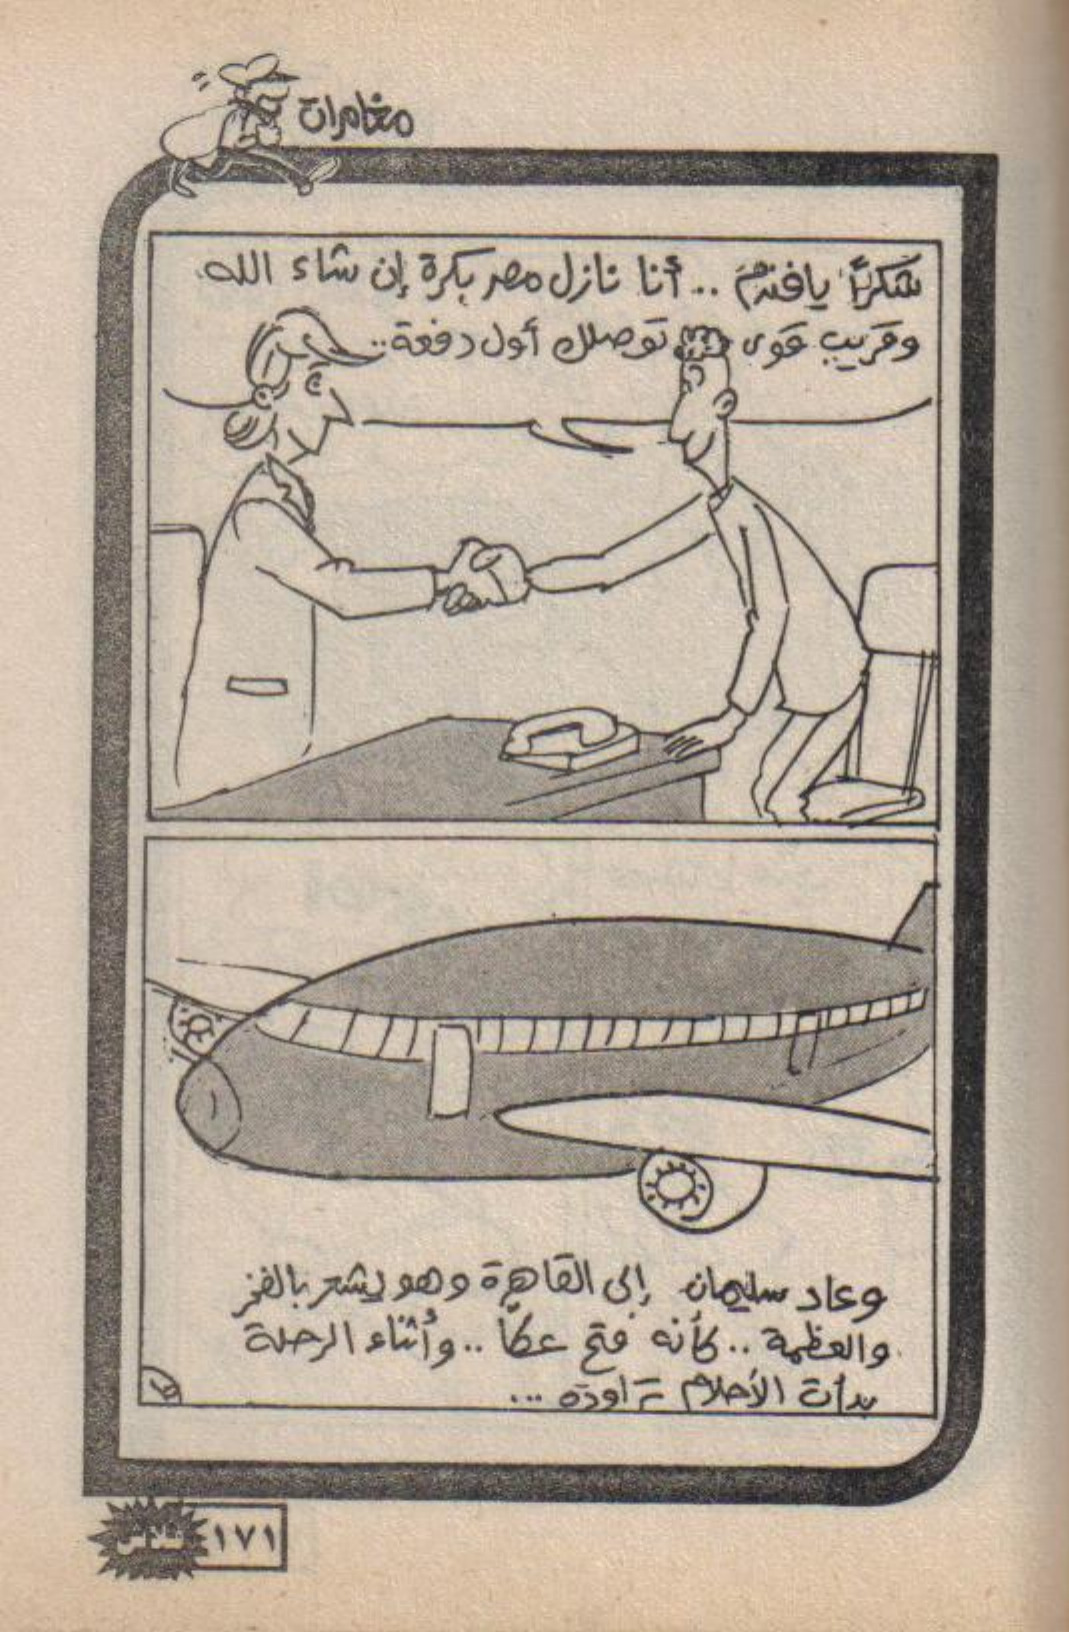 مغامرات
شكرًا يافندم .. أنا نازل مصر بكرة إن شاء الله
وقريب قوى توصلك أول دفعة ..
وعاد سليمان إلى القاهرة وهو يشعر بالفخر
والعظمة .. كأنه فتح عكا .. وأثناء الرحلة
بدأت الأحلام تراوده ...
فلاش
١٧١